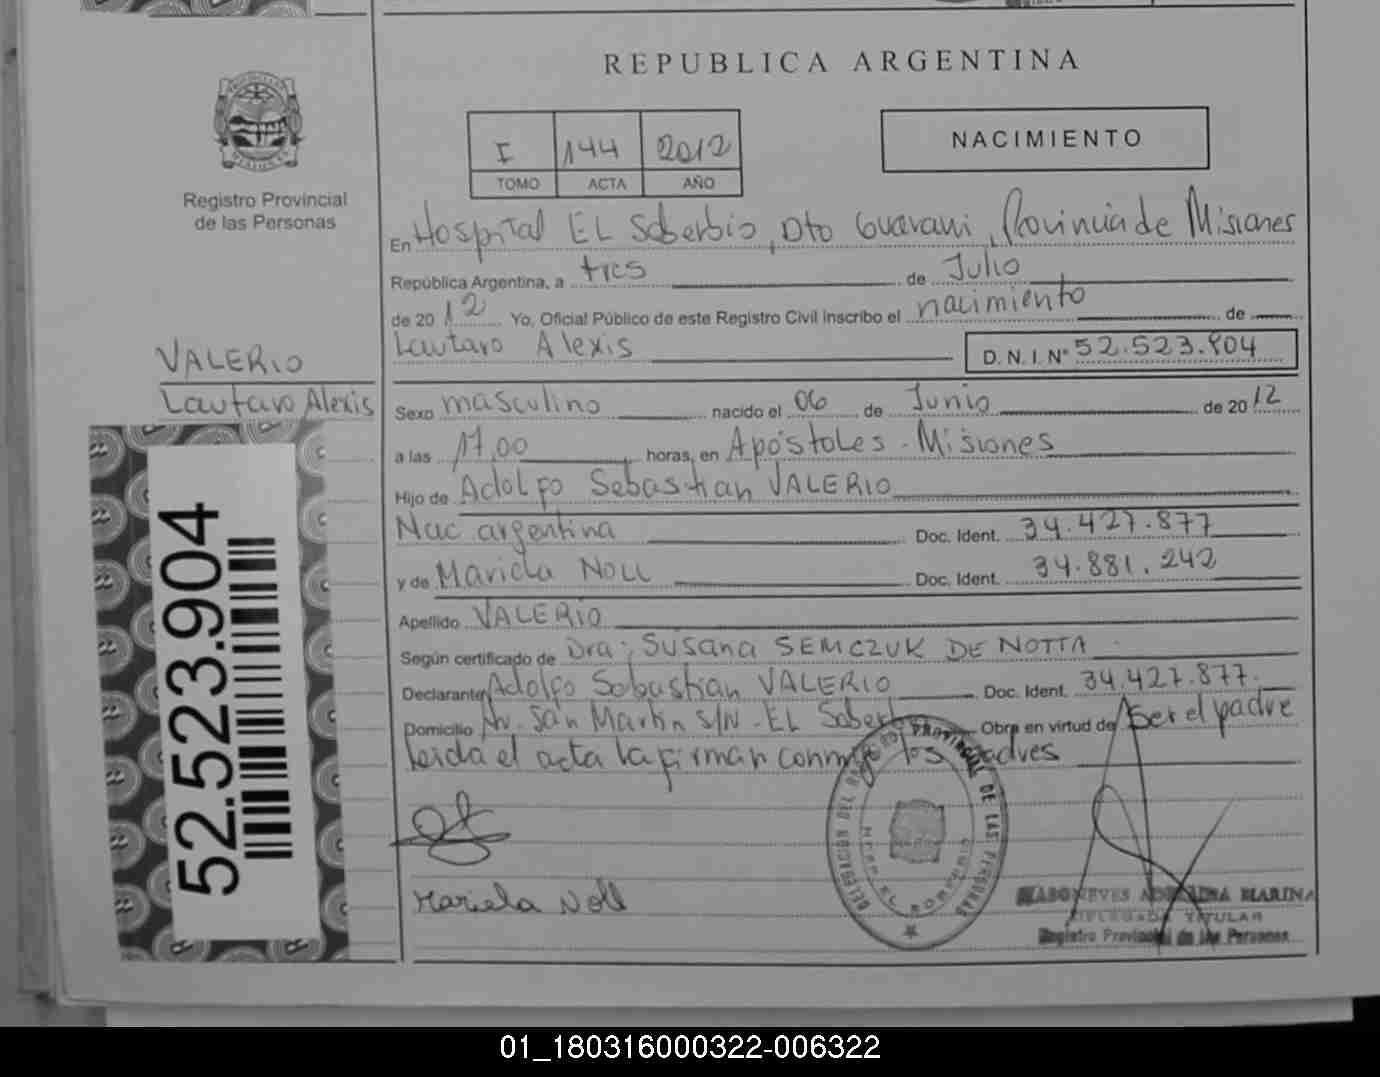 REPUBLICA ARGENTINA
I 144 2012
TOMO ACTA AÑO
NACIMIENTO
Registro Provincial
de las Personas
En Hospital EL Soberbio, Dto Guarani, Provincia de Misiones
República Argentina, a tres de Julio
de 2012 Yo, Oficial Público de este Registro Civil inscribo el nacimiento de
Lautaro Alexis D. N. I. Nº 52.523.904
VALERIO
Lautaro Alexis
Sexo masculino nacido el 06 de Junio de 2012
a las 17,00 horas, en Apóstoles - Misiones
Hijo de Adolfo Sebastian VALERIO
Nac argentina Doc. Ident. 34.427.877
y de Mariela NOLL Doc. Ident. 34.881.242
Apellido VALERIO
Según certificado de Dra; Susana SEMCZUK DE NOTTA
Declarante Adolfo Sebastian VALERIO Doc. Ident. 34.427.877.
Domicilio Av. San Martin S/N - EL Soberb Obra en virtud de Ser el padre
leida el acta la firman conmigo los padres
52.523.904
Mariela Noll
DELEGACION DEL REGISTRO PROVINCIAL DE LAS PERSONAS
EL SOBERBIO
MARINA
DELEGADA TITULAR
Registro Provincial de las Personas
01_180316000322-006322